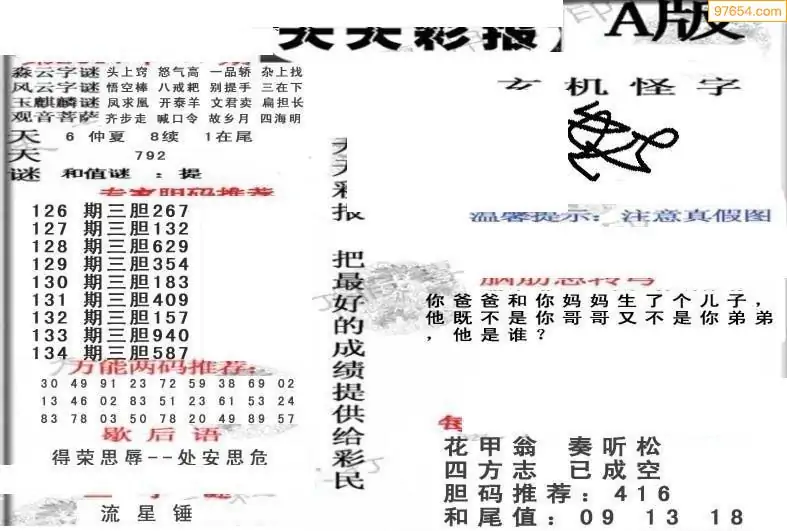 97654.com
天天彩报 A版
森云字谜 头上窍 怒气高 一品轿 杂上找
风云字谜 悟空棒 八戒耙 别提手 三在下
玉麒麟谜 凤求凰 开泰羊 文君卖 扁担长
观音菩萨 齐步走 喊口令 故乡月 四海明
天 6 仲夏 8续 1在尾
天 792
谜 和值谜 : 提
专家胆码推荐
126 期三胆267
127 期三胆132
128 期三胆629
129 期三胆354
130 期三胆183
131 期三胆409
132 期三胆157
133 期三胆940
134 期三胆587
万能两码推荐:
30 49 91 23 72 59 38 69 02
13 46 02 83 51 23 61 53 24
83 78 03 50 78 20 49 89 57
歇后语
得荣思辱--处安思危
流星锤
天天彩报 把最好的成绩提供给彩民
玄机怪字
温馨提示: 注意真假图
脑筋急转弯
你爸爸和你妈妈生了个儿子,
他既不是你哥哥又不是你弟弟
,他是谁?
花甲翁 奏听松
四方志 已成空
胆码推荐: 416
和尾值: 09 13 18